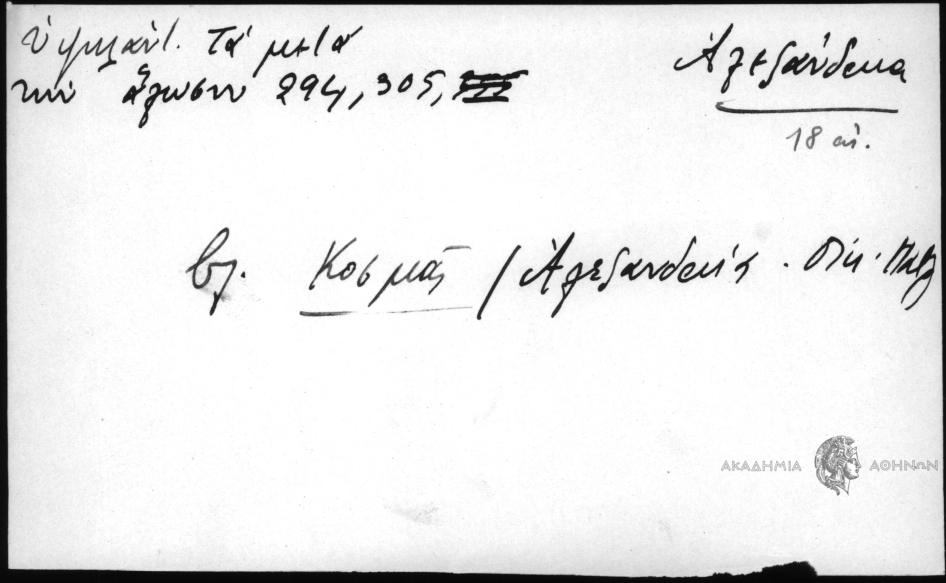 Ὑψηλάντ. Τά μετά
τήν ἅλωσιν 294, 305,
Ἀλεξάνδρεια
18 αἰ.
βλ. Κοσμᾶς / Ἀλεξανδρείας. Οἰκ. Πατρ
ΑΚΑΔΗΜΙΑ ΑΘΗΝΩΝ